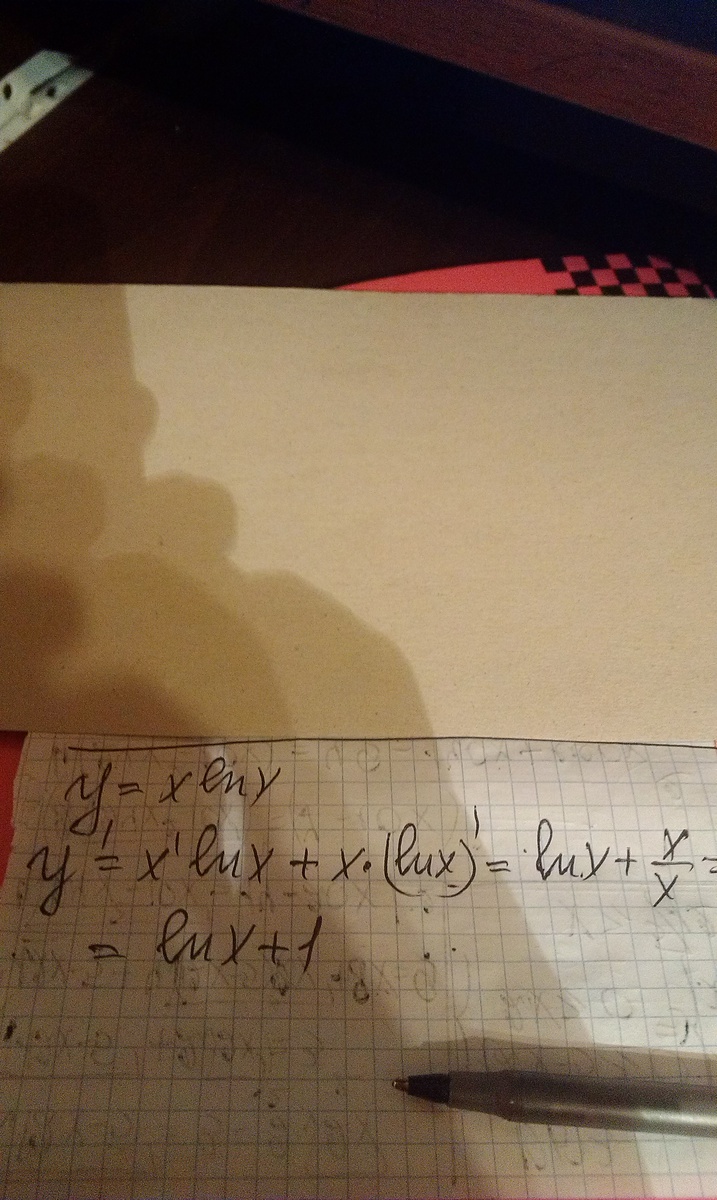 y = x ln x
y' = x' ln x + x · (ln x)' = ln x + x/x =
= ln x + 1